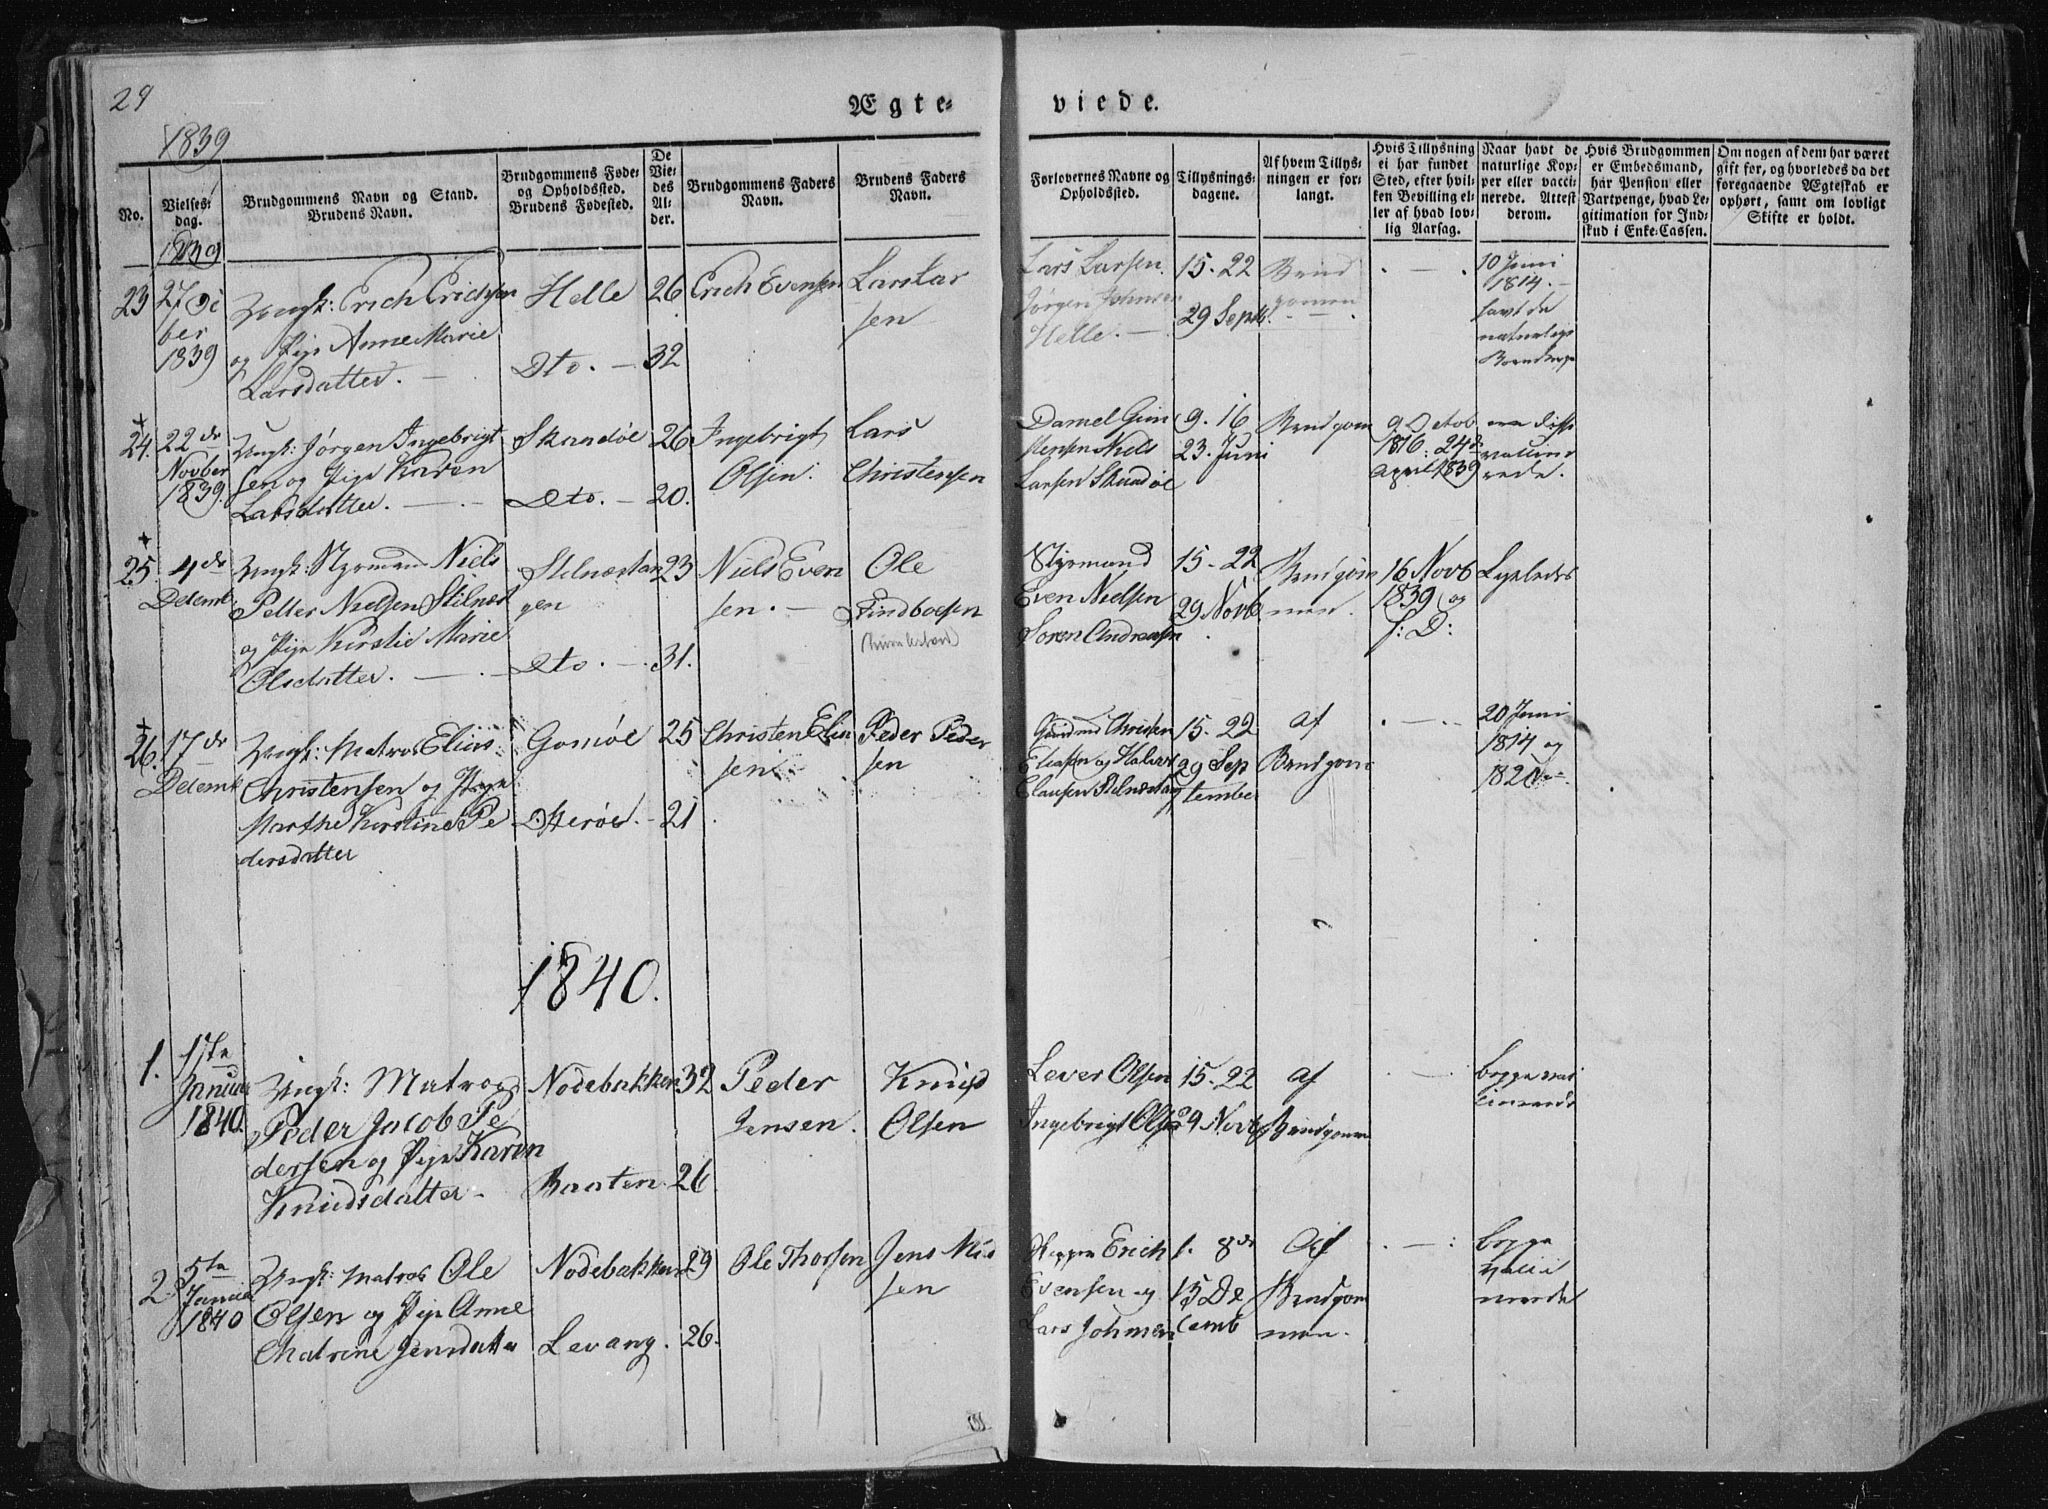 29
Ægte-
viede.
1839
No.
Vielses-
dag.
Brudgommens Navn og Stand.
Brudens Navn.
Brudgommens Føde-
og Opholdssted.
Brudens Fødested.
De
Vie-
des
Al-
der.
Brudgommens Faders
Navn.
Brudens Faders
Navn.
Forlovernes Navne og
Opholdssted.
Tillysnings-
dagene.
Af hvem Tillys-
ningen er for-
langt.
Hvis Tillysning
ei har fundet
Sted, efter hvil-
ken Bevilling el-
ler af hvad lov-
lig Aarsag.
Naar havt de
naturlige Kop-
per eller vacci-
nerede. Attest
derom.
Hvis Brudgommen
er Embedsmand,
har Pension eller
Vartpenge, hvad Le-
gitimation for Ind-
skud i Enke-Cassen.
Om nogen af dem har været
gift før, og hvorledes da det
foregaaende Ægteskab er
ophørt, samt om lovligt
Skifte er holdt.
1839
23
27
ber
1839
Ungk: Erich Erichsen
og Pige Anne Marie
Larsdatter.
Helle
Dto.
26
32
Erich Evensen
Lars Lar
sen
Lars Larsen
Jørgen Johnsen
Helle.
15. 22
29 Septb.
Brud
gomen
10 Juni
1814.
havt de
naturlige
24.
22de
Novber
1839.
Ungk: Jørgen Ingebrigt
sen og Pige Karen
Larsdatter.
Dto.
26
20.
Ingebrigt
Olsen.
Lars
Christensen
Niels
Larsen
9. 16
23. Juni
Brudgom
9 Octob
1816. 24de
April 1839
rede.
25.
4de
Decemb
Ungk: Styrmand Niels
Petter Nielsen Stilnæs
og Pige Kirstie Marie
Olsdatter.
Stilnæstan
gen
Dto.
23
31.
Niels Even
sen.
Ole
Findboesen
Styrmand
Even Nielsen
Søren Andreasen
15. 22
29 Novb
Brudgom
men.
16 Novb
1839 og
s: D:
Ligeledes
26.
17de
Decemb
Ungk: Matros Elias
Christensen og Pige
Marthe Kirstine Pe
dersdatter
Gomøe
Otterøe.
25
21
Christen Elia
sen
Peder Peder
sen
Gudmund Christen
Eliasen og Halvor
Clausen Stilnæstan
15. 22
29 Sep
tember
af
Brudgom
20 Juni
1814 og
1820
1840.
1.
17ta
Januar
1840.
Ungk: Matros
Peder Jacob Pe
dersen og Pige Karen
Knudsdatter
Nødebakken
Baaten.
32
26
Peder
Jensen.
Knud
Olsen
Lever Olsen
Ingebrigt Olsen
15. 22
29 Novb
af
Brudgomm
begge vac
cinerede
2.
5ta
Januar
1840
Ungk: Matros Ole
Olsen og Pige Anne
Chatrine Jensdatter
Nødebakken
Levang.
29
26.
Ole Thorsen
Jens Nil
sen
Skipper Erich
Evensen og
Lars Johnsen
1. 8de
15 De
cemb
Af
Brudgom
men.
begge
vacci
nerede